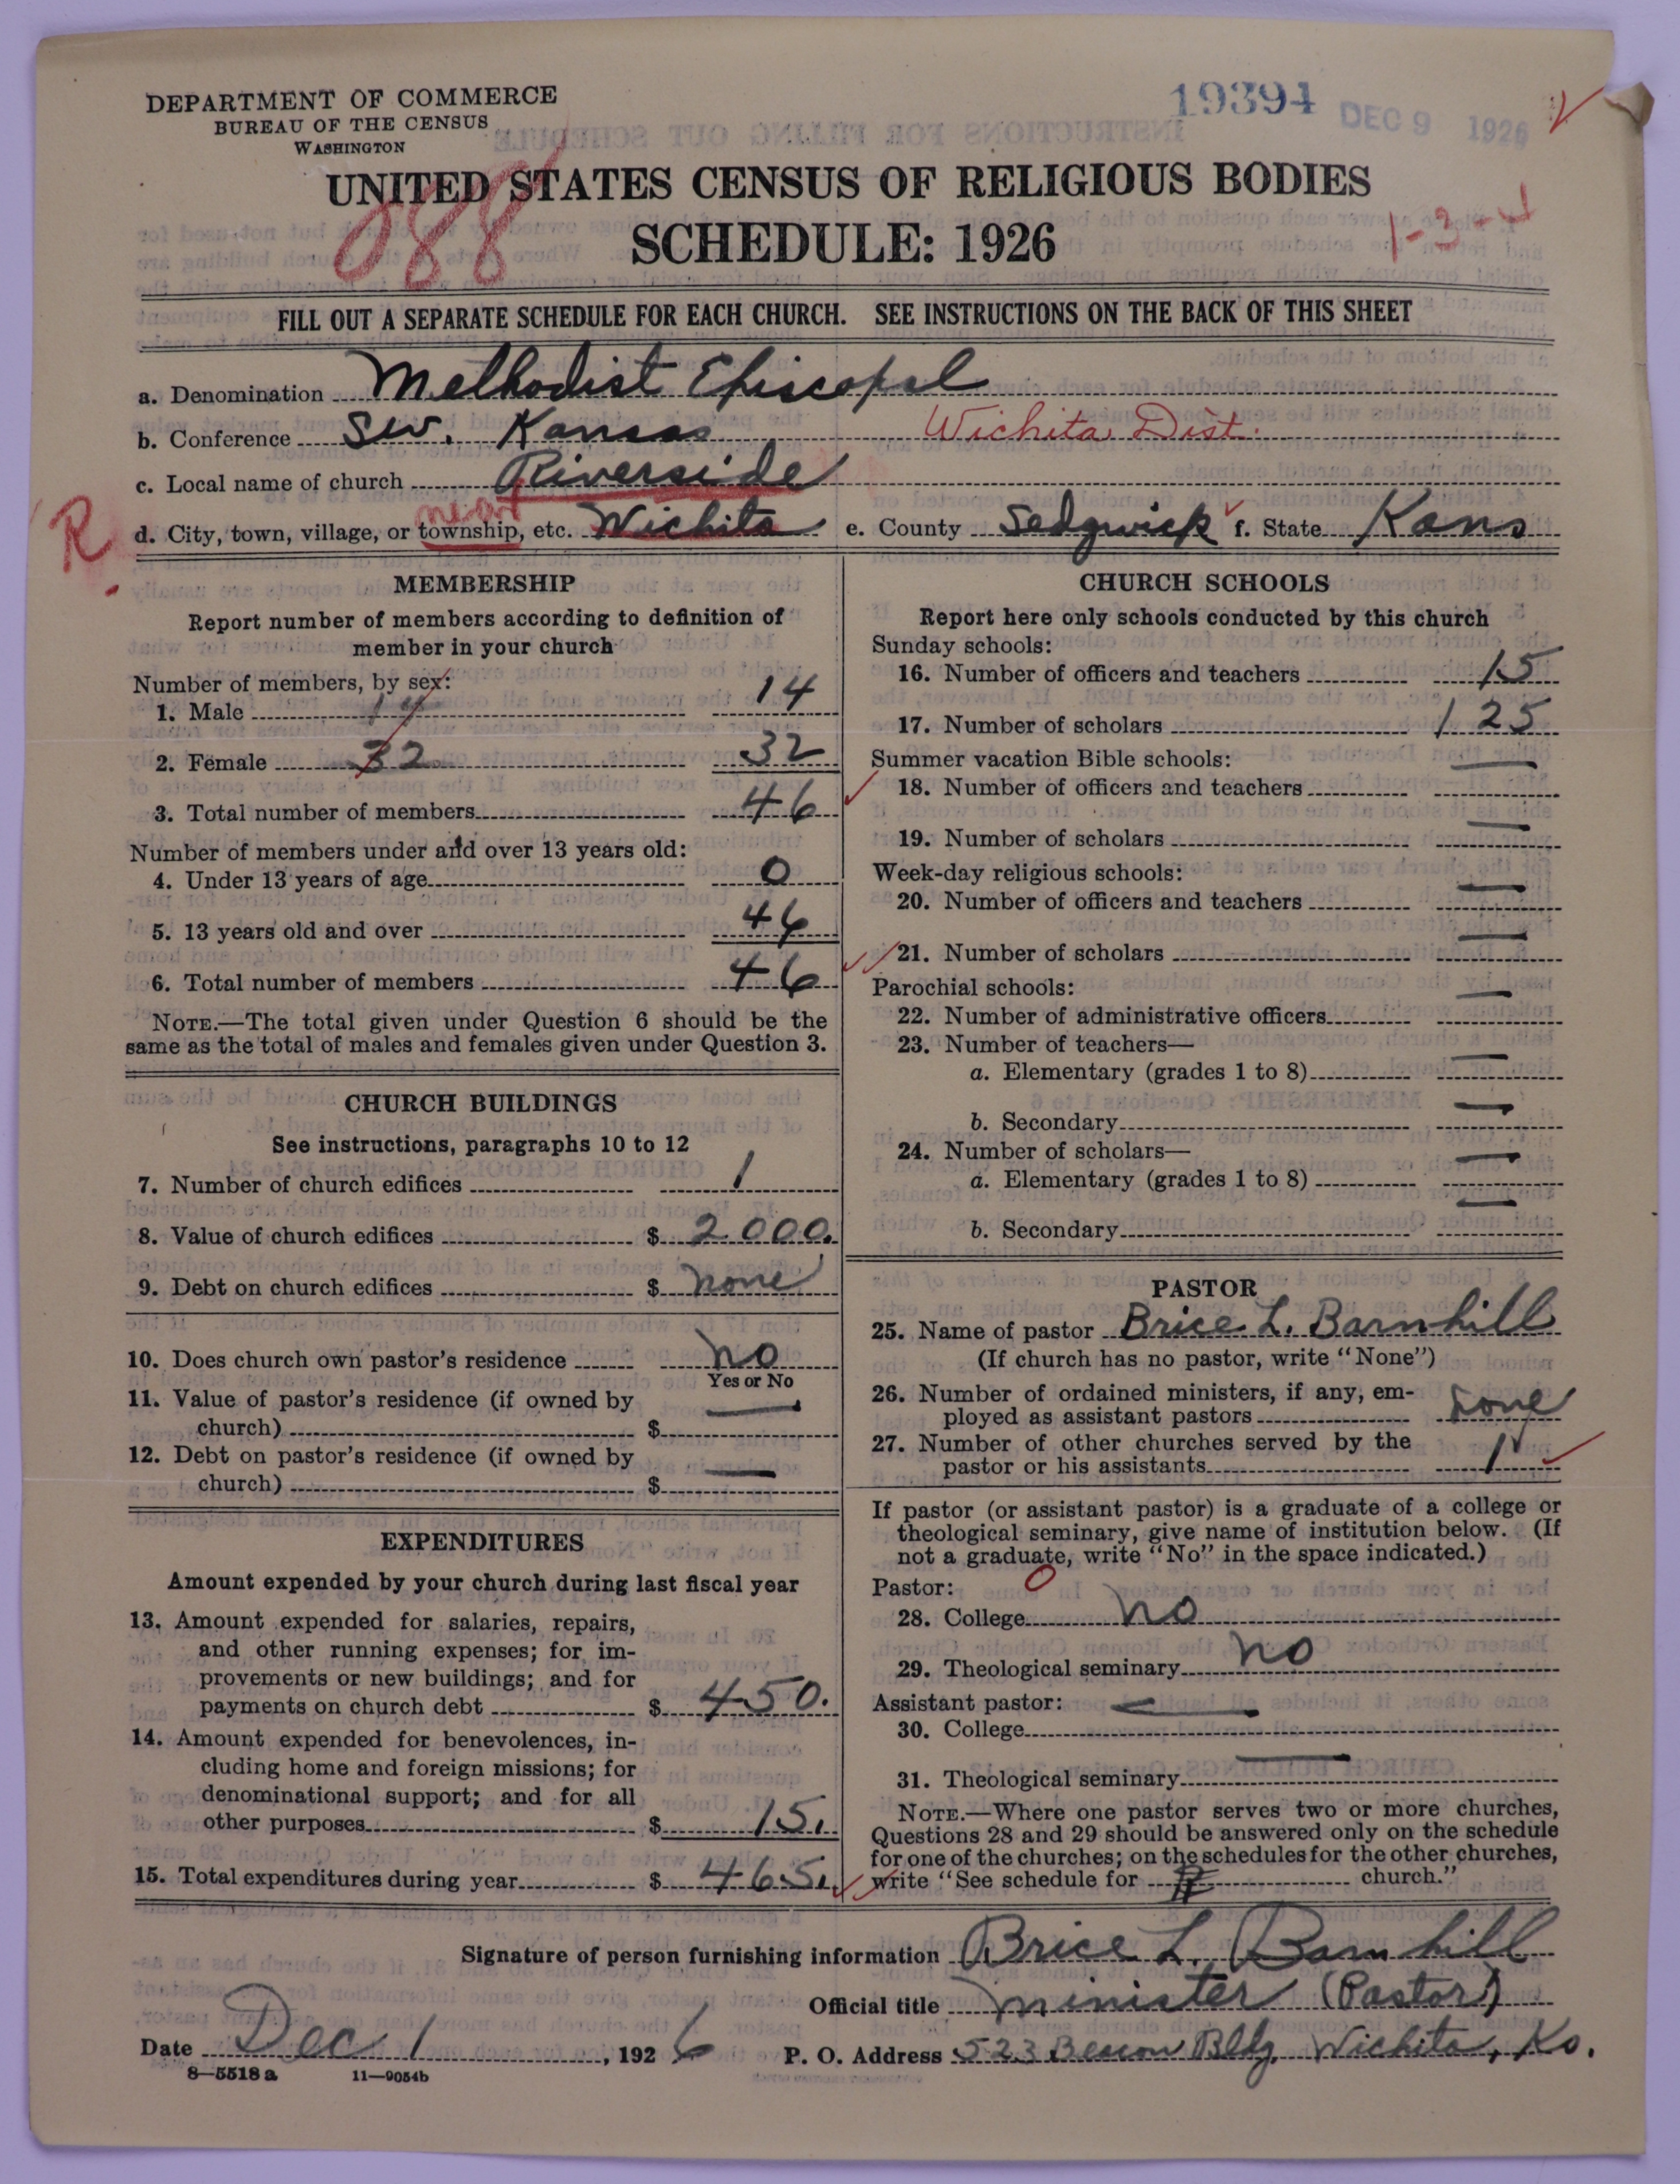 DEPARTMENT OF COMMERCE
BUREAU OF THE CENSUS
WASHINGTON
19394 DEC 9 1926
UNITED STATES CENSUS OF RELIGIOUS BODIES
088
SCHEDULE: 1926
1-3-4
FILL OUT A SEPARATE SCHEDULE FOR EACH CHURCH. SEE INSTRUCTIONS ON THE BACK OF THIS SHEET
a. Denomination Methodist Episcopal
b. Conference S.W. Kansas Wichita Dist.
c. Local name of church Riverside
R near
d. City, town, village, or township, etc. Wichita e. County Sedgwick f. State Kans
MEMBERSHIP
Report number of members according to definition of
member in your church
Number of members, by sex:
1. Male 14 14
2. Female 32 32
3. Total number of members 46
Number of members under and over 13 years old:
4. Under 13 years of age 0
5. 13 years old and over 46
6. Total number of members 46
NOTE.—The total given under Question 6 should be the
same as the total of males and females given under Question 3.
CHURCH BUILDINGS
See instructions, paragraphs 10 to 12
7. Number of church edifices 1
8. Value of church edifices $ 2000.
9. Debt on church edifices $ none
10. Does church own pastor's residence no
Yes or No
11. Value of pastor's residence (if owned by
church) $ —
12. Debt on pastor's residence (if owned by
church) $ —
EXPENDITURES
Amount expended by your church during last fiscal year
13. Amount expended for salaries, repairs,
and other running expenses; for im-
provements or new buildings; and for
payments on church debt $ 450.
14. Amount expended for benevolences, in-
cluding home and foreign missions; for
denominational support; and for all
other purposes $ 15.
15. Total expenditures during year $ 465.
CHURCH SCHOOLS
Report here only schools conducted by this church
Sunday schools:
16. Number of officers and teachers 15
17. Number of scholars 125
Summer vacation Bible schools:
18. Number of officers and teachers —
19. Number of scholars —
Week-day religious schools:
20. Number of officers and teachers —
21. Number of scholars —
Parochial schools:
22. Number of administrative officers —
23. Number of teachers—
a. Elementary (grades 1 to 8) —
b. Secondary —
24. Number of scholars—
a. Elementary (grades 1 to 8) —
b. Secondary —
PASTOR
25. Name of pastor Brice L. Barnhill
(If church has no pastor, write "None")
26. Number of ordained ministers, if any, em-
ployed as assistant pastors none
27. Number of other churches served by the
pastor or his assistants 1
If pastor (or assistant pastor) is a graduate of a college or
theological seminary, give name of institution below. (If
not a graduate, write "No" in the space indicated.)
Pastor: 0
28. College no
29. Theological seminary no
Assistant pastor: —
30. College
31. Theological seminary —
NOTE.—Where one pastor serves two or more churches,
Questions 28 and 29 should be answered only on the schedule
for one of the churches; on the schedules for the other churches,
write "See schedule for church."
Signature of person furnishing information Brice L. Barnhill
Official title minister (Pastor)
Date Dec 1, 1926 P. O. Address 523 Beacon Bldg, Wichita, Ks.
8—5518 a 11—9054b